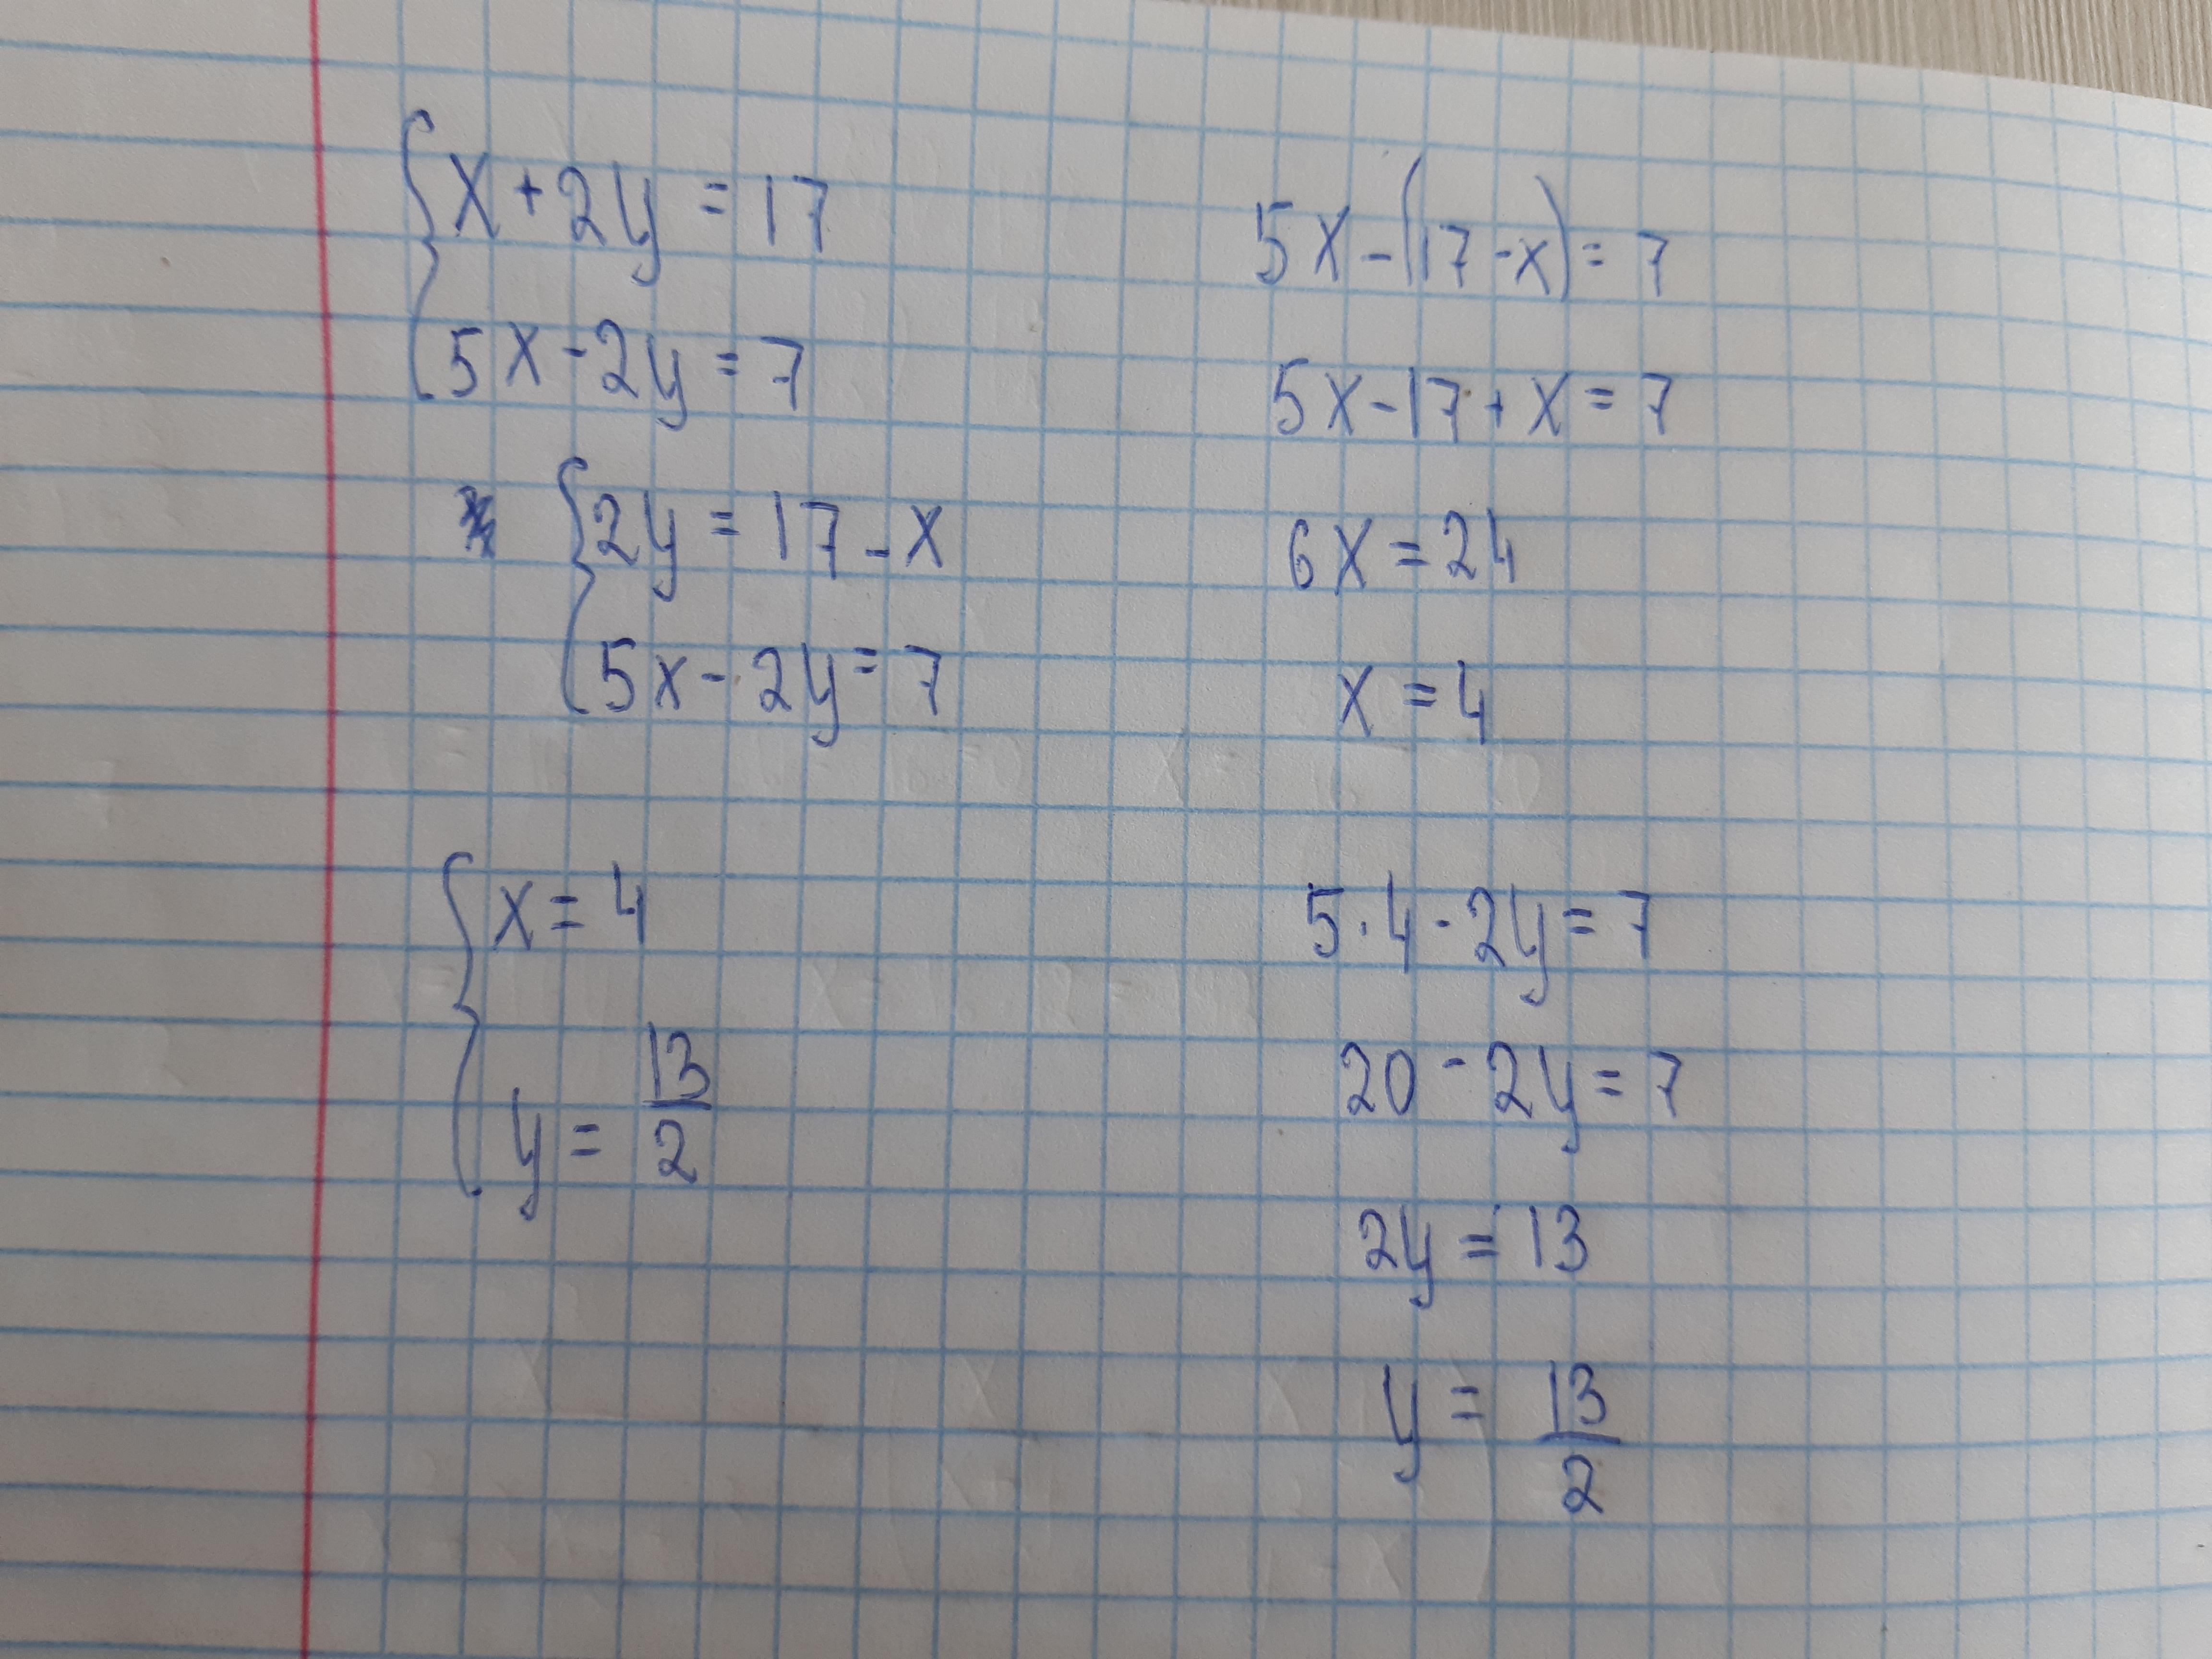 x + 2y = 17
5x - 2y = 7
2y = 17 - x
5x - 2y = 7
x = 4
y = 13/2
5x - (17 - x) = 7
5x - 17 + x = 7
6x = 24
x = 4
5 · 4 - 2y = 7
20 - 2y = 7
2y = 13
y = 13/2